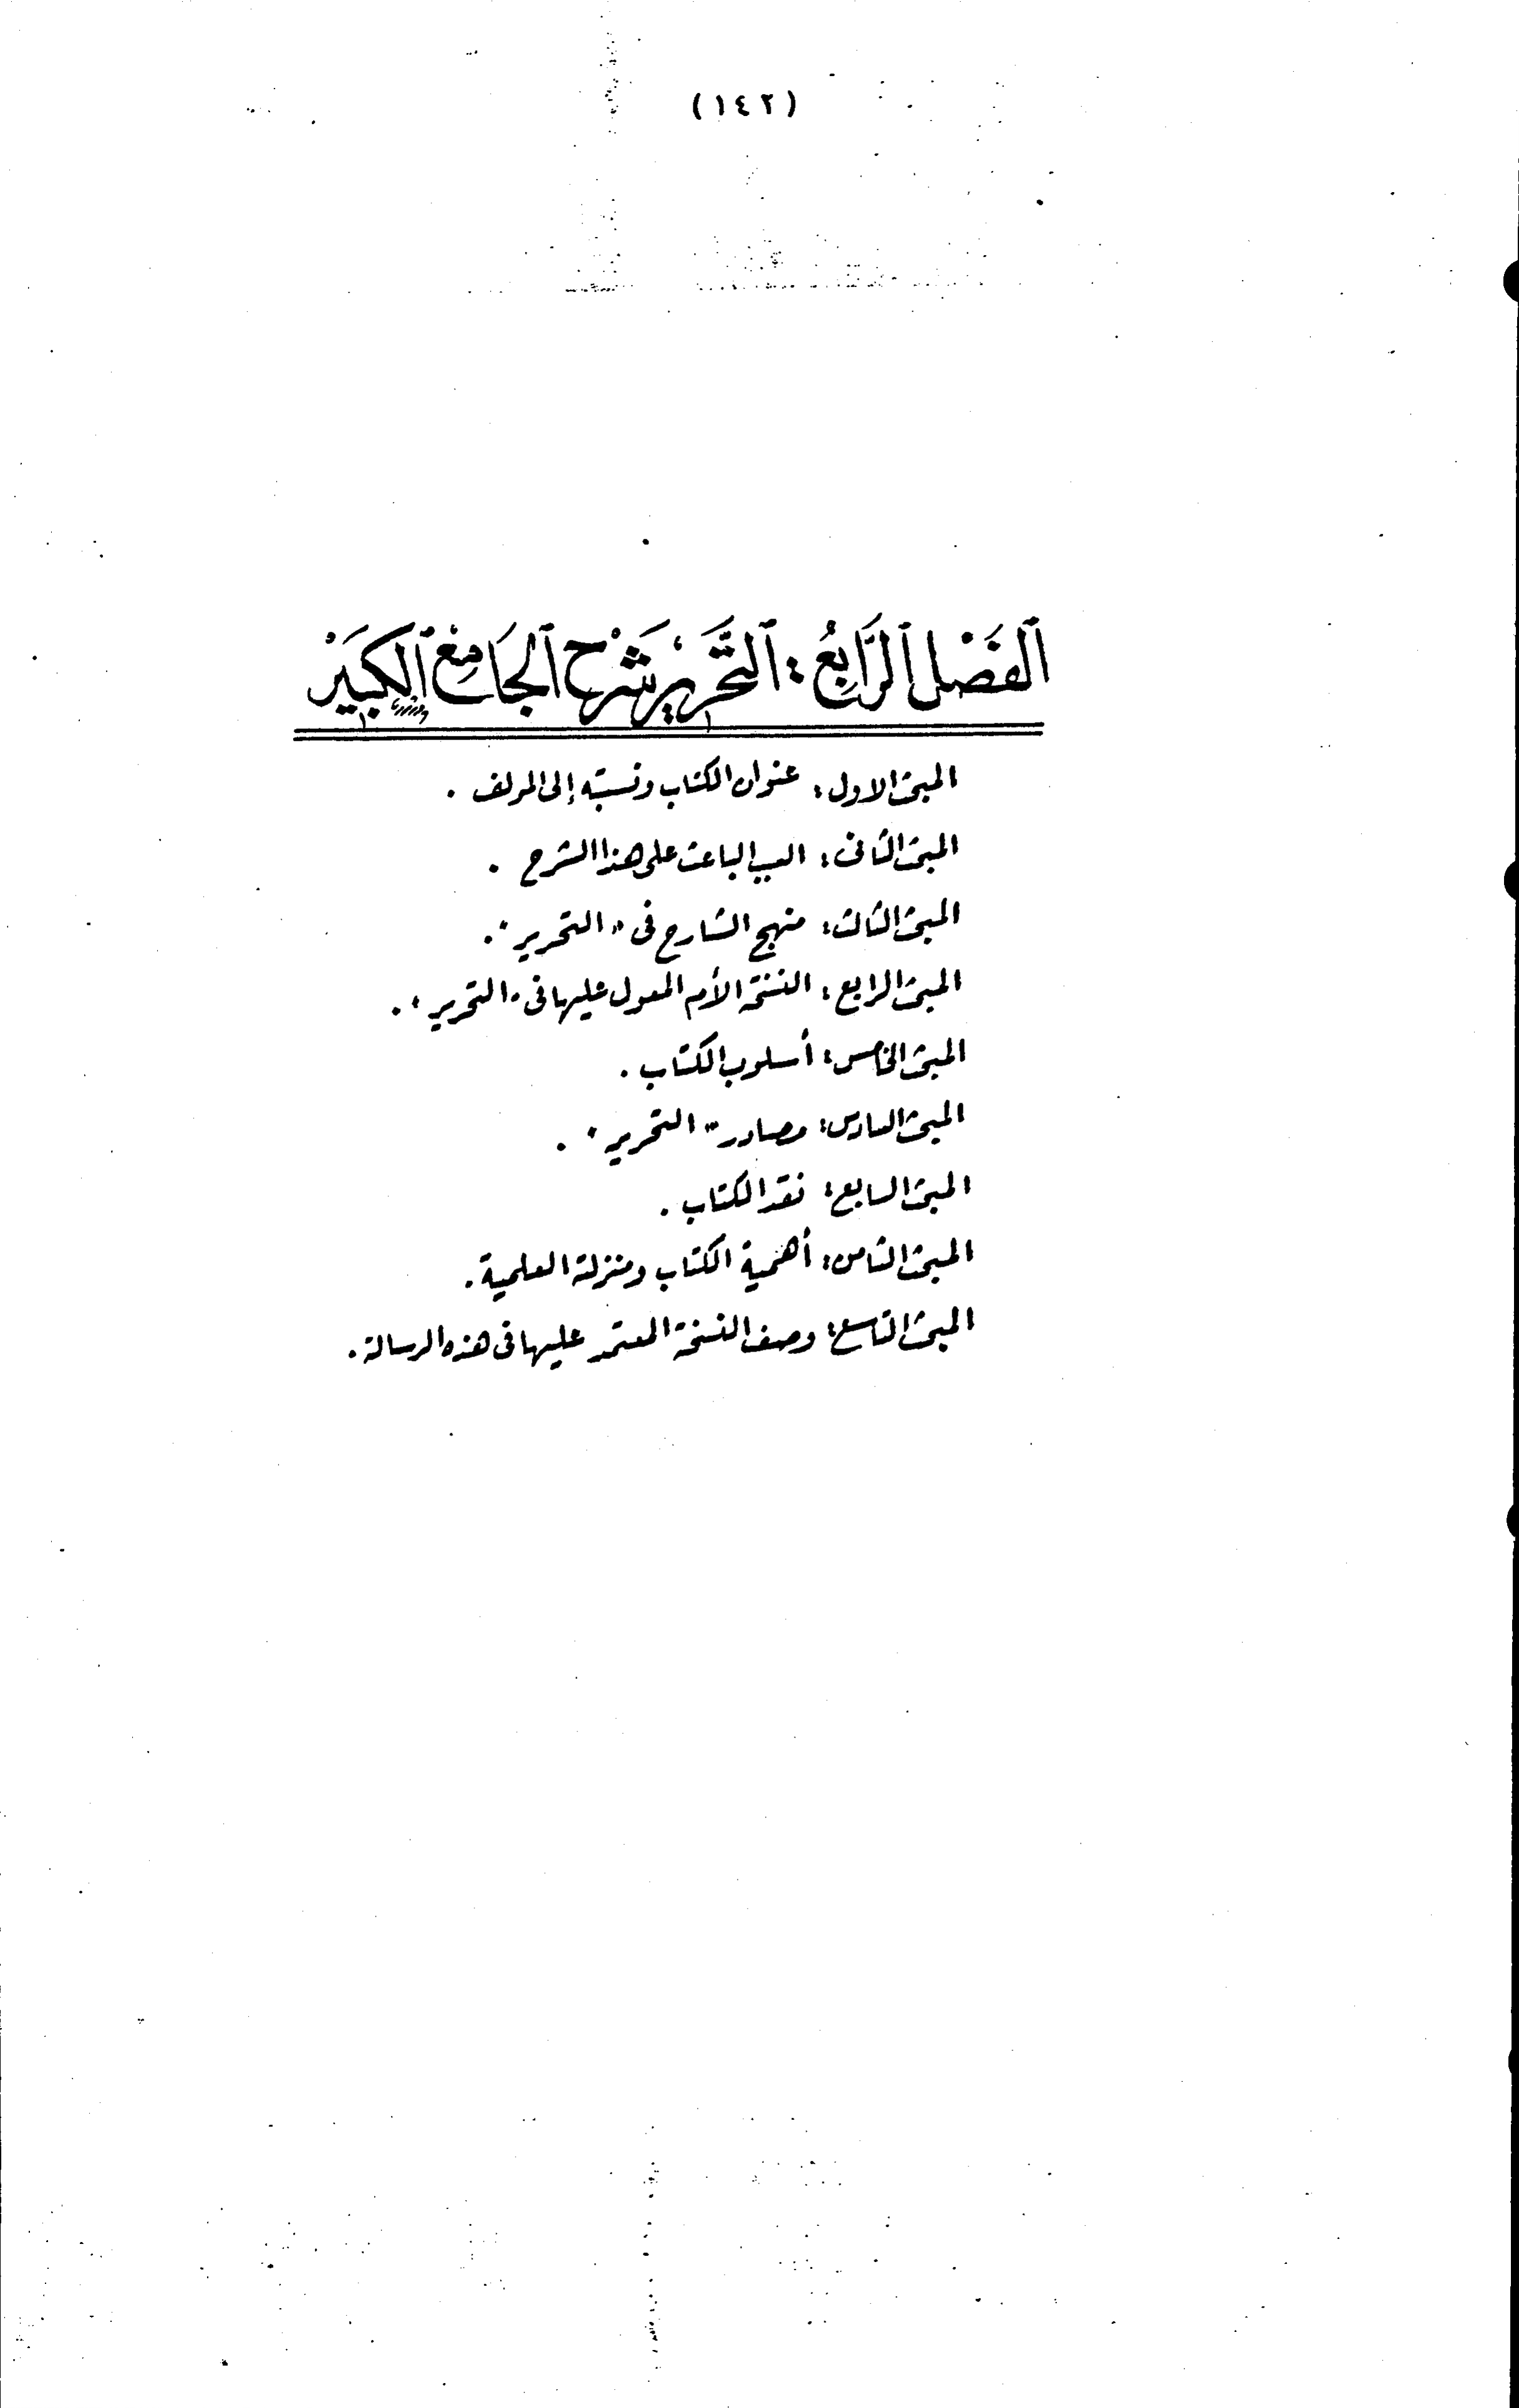 (١٤٢)
الفَصْل الرَّابِعُ : التَّحرير شَرْح الجَامِع الكَبِيْر
المبحث الاول : عنوان الكتاب ونسبته إلى المؤلف .
المبحث الثانى : السبب الباعث على هذا الشرح .
المبحث الثالث : منهج الشارح فى " التحرير " .
المبحث الرابع : النسخة الأم المعول عليها فى " التحرير " .
المبحث الخامس : أسلوب الكتاب .
المبحث السادس : مصادر " التحرير " .
المبحث السابع : نقد الكتاب .
المبحث الثامن : أهمية الكتاب ومنزلته العلمية .
المبحث التاسع : وصف النسخة المعتمد عليها فى هذه الرسالة .